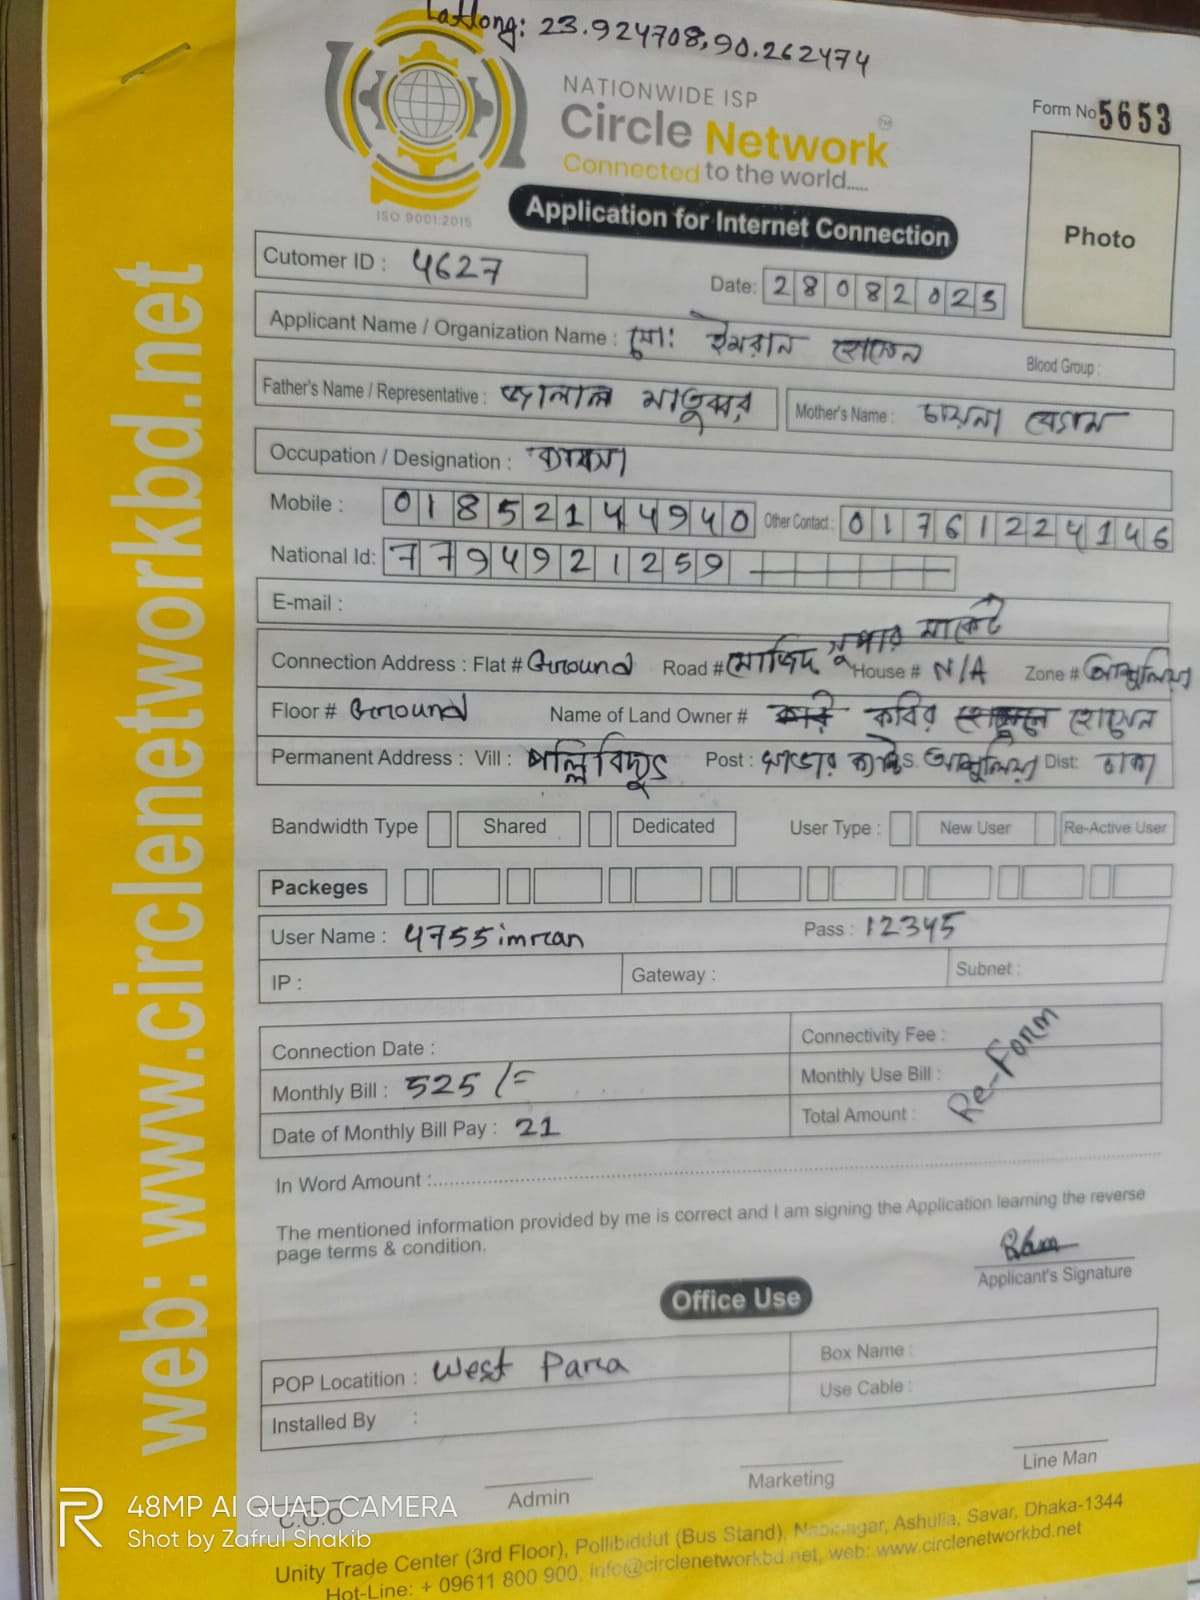 Latlong: 23.924708,90.262474
NATIONWIDE ISP
Circle Network TM
Connected to the world.....
ISO 9001:2015
Form No 5653
Photo
Application for Internet Connection
Cutomer ID : 4627
Date: 28082023
Applicant Name / Organization Name : মো: ইমরান হোসেন
Blood Group :
Father's Name / Representative : জালাল মাতুব্বর
Mother's Name : চায়না বেগম
Occupation / Designation : ব্যবসা
Mobile : 01852144940 Other Contact : 01761224146
National Id: 7794921259
E-mail :
Connection Address : Flat # Ground Road # মোজিদ সুপার মার্কেট House # N/A Zone # আশুলিয়া
Floor # Ground Name of Land Owner # কবির হোসেন
Permanent Address : Vill : পল্লিবিদ্যুৎ Post : সাভার ক্যান্ট P.S. আশুলিয়া Dist: ঢাকা
Bandwidth Type Shared Dedicated User Type : New User Re-Active User
Packeges
User Name : 4755imran Pass : 12345
IP : Gateway : Subnet :
Connection Date : Connectivity Fee :
Monthly Bill : 525/= Monthly Use Bill :
Date of Monthly Bill Pay : 21 Total Amount :
Re-Form
In Word Amount :
The mentioned information provided by me is correct and I am signing the Application learning the reverse
page terms & condition.
Applicant's Signature
Office Use
POP Locatition : West Para Box Name :
Installed By : Use Cable :
C.O.O Admin Marketing Line Man
Unity Trade Center (3rd Floor), Pollibiddut (Bus Stand), Nabinagar, Ashulia, Savar, Dhaka-1344
Hot-Line: + 09611 800 900, info@circlenetworkbd.net, web: www.circlenetworkbd.net
web: www.circlenetworkbd.net
48MP AI QUAD CAMERA
Shot by Zafrul Shakib